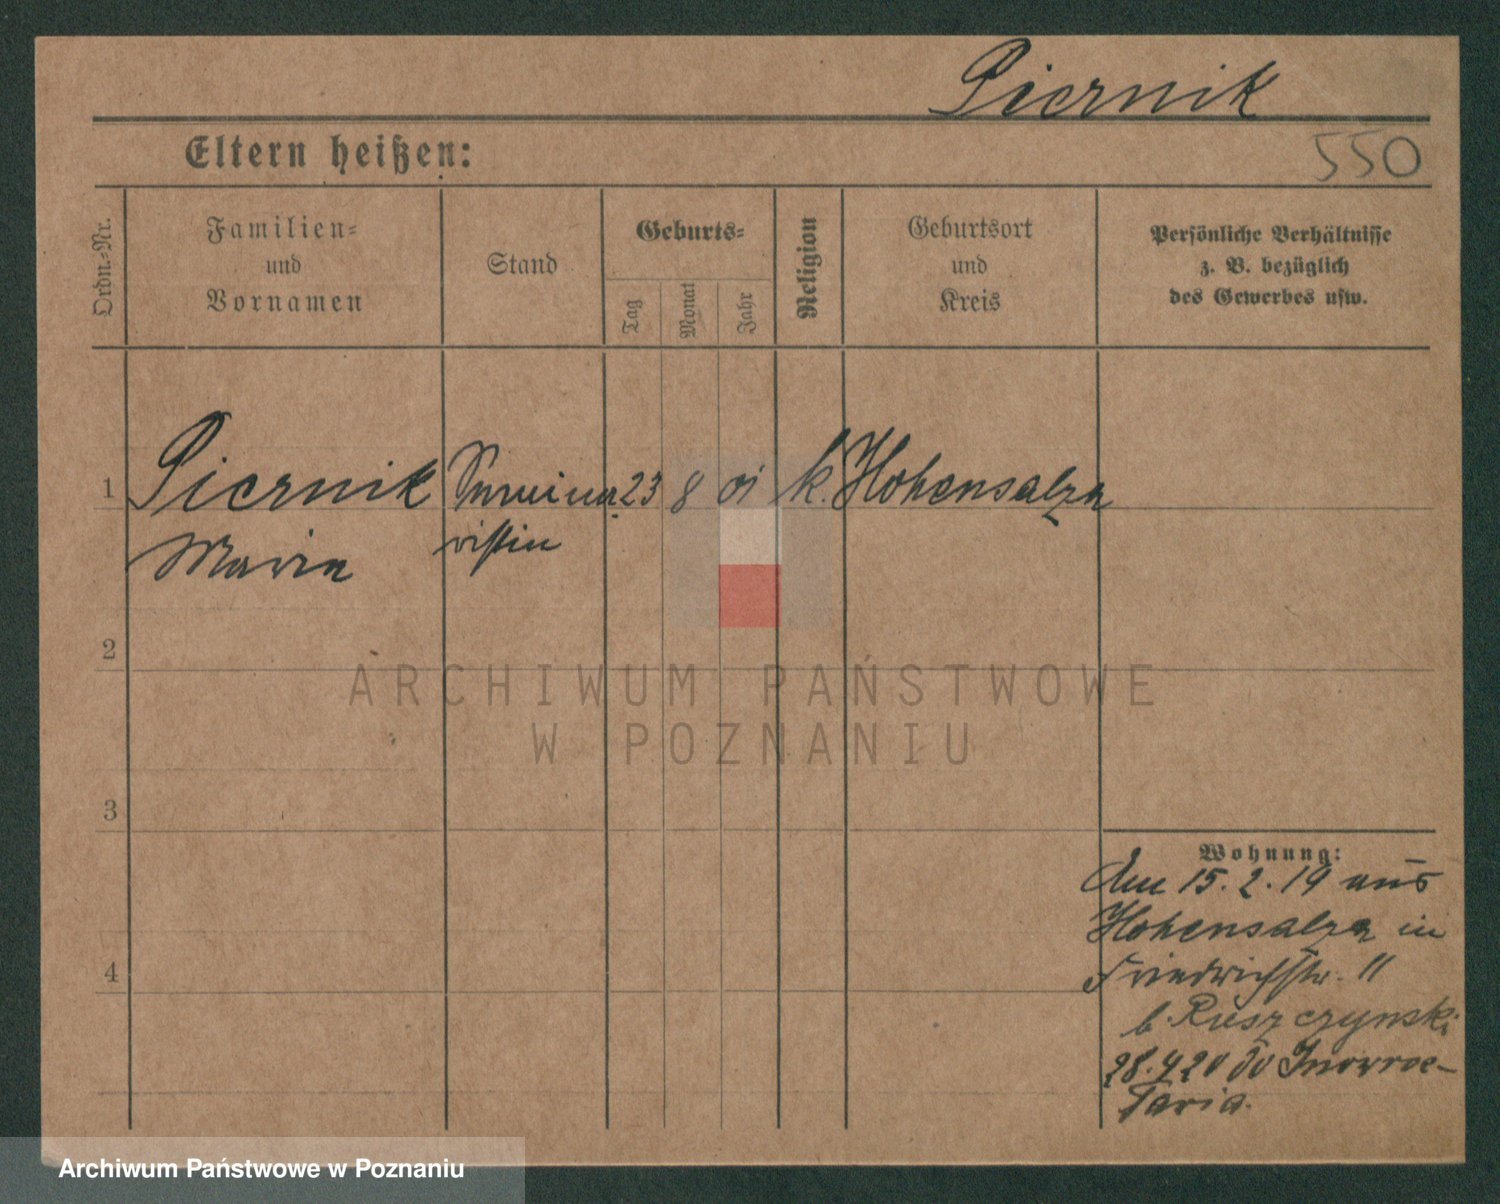 Piernik
550
Eltern heißen:
Ordn.-Nr.
Familien-
und
Vornamen
Stand
Geburts-
Tag
Monat
Jahr
Religion
Geburtsort
und
Kreis
Persönliche Verhältnisse
z. B. bezüglich
des Gewerbes usw.
1 Piernik Semina 23 8 01 k. Hohensalza
Maria ristin
2
ARCHIWUM PAŃSTWOWE
W POZNANIU
3
4
Wohnung:
Am 15.2.19 aus
Hohensalza in
Friedrichstr. 11
b. Ruszczynski
28.4.20 do Inowroc-
ławia.
Archiwum Państwowe w Poznaniu